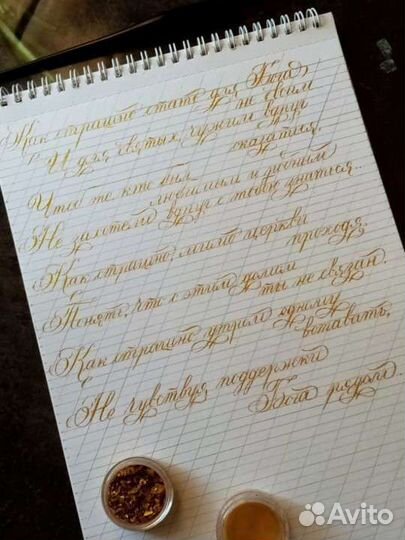 Как страшно стать для Бога,
И для святых, чужим вдруг не своим
оказаться,
Чтоб те, кто был любимым и
Не захотели вдруг с тобою знаться...
Как страшно, мимо церкви проходя
Понять, что с этим домом ты не связан.
Как страшно утром одному вставать,
Не чувствуя поддержки
Бога рядом.
Avito